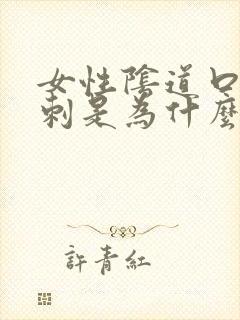 女性陰道口
刺是為什麼
許青紅